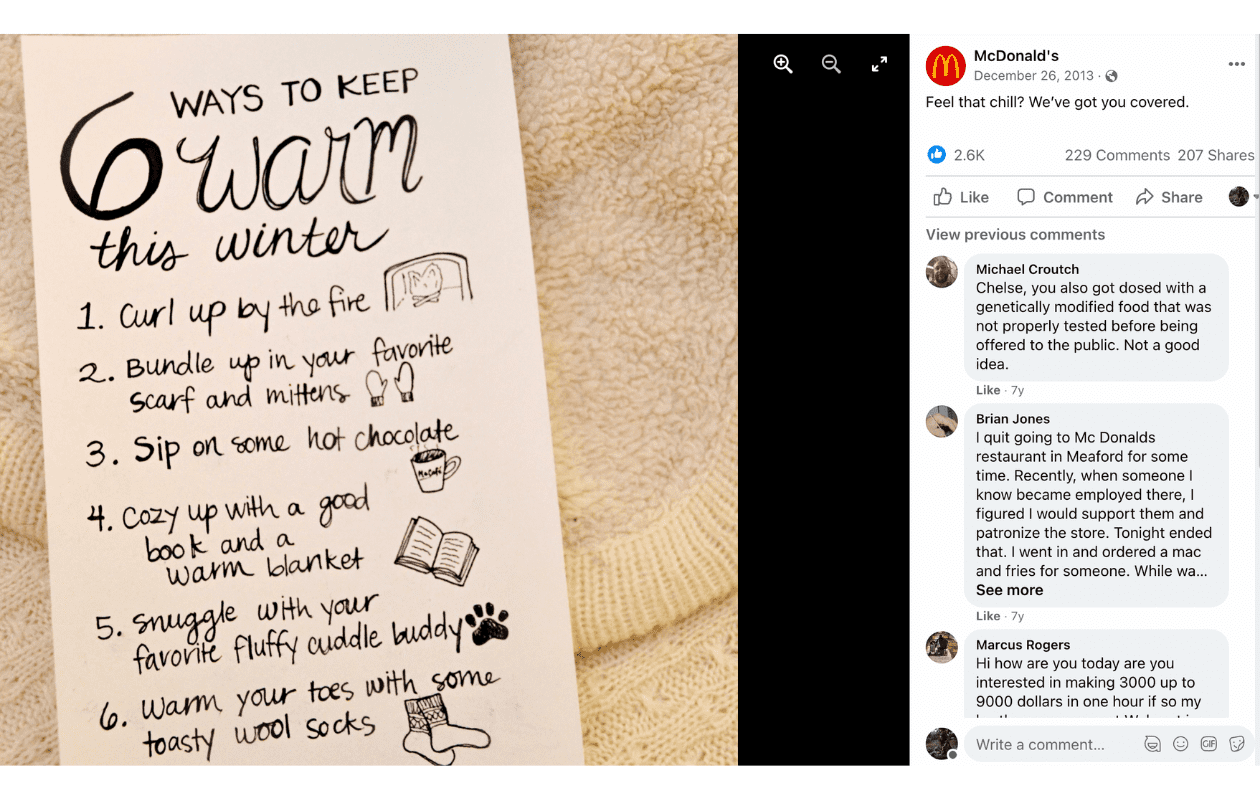 WAYS TO KEEP
6 warm
this winter
1. Curl up by the fire
2. Bundle up in your favorite
scarf and mittens
3. Sip on some hot chocolate
McCafé
4. Cozy up with a good
book and a
warm blanket
5. Snuggle with your
favorite fluffy cuddle buddy
6. Warm your toes with some
toasty wool socks
McDonald's
December 26, 2013 ·
Feel that chill? We’ve got you covered.
2.6K
229 Comments 207 Shares
Like Comment Share
View previous comments
Michael Croutch
Chelse, you also got dosed with a
genetically modified food that was
not properly tested before being
offered to the public. Not a good
idea.
Like · 7y
Brian Jones
I quit going to Mc Donalds
restaurant in Meaford for some
time. Recently, when someone I
know became employed there, I
figured I would support them and
patronize the store. Tonight ended
that. I went in and ordered a mac
and fries for someone. While wa...
See more
Like · 7y
Marcus Rogers
Hi how are you today are you
interested in making 3000 up to
9000 dollars in one hour if so my
Write a comment...
GIF